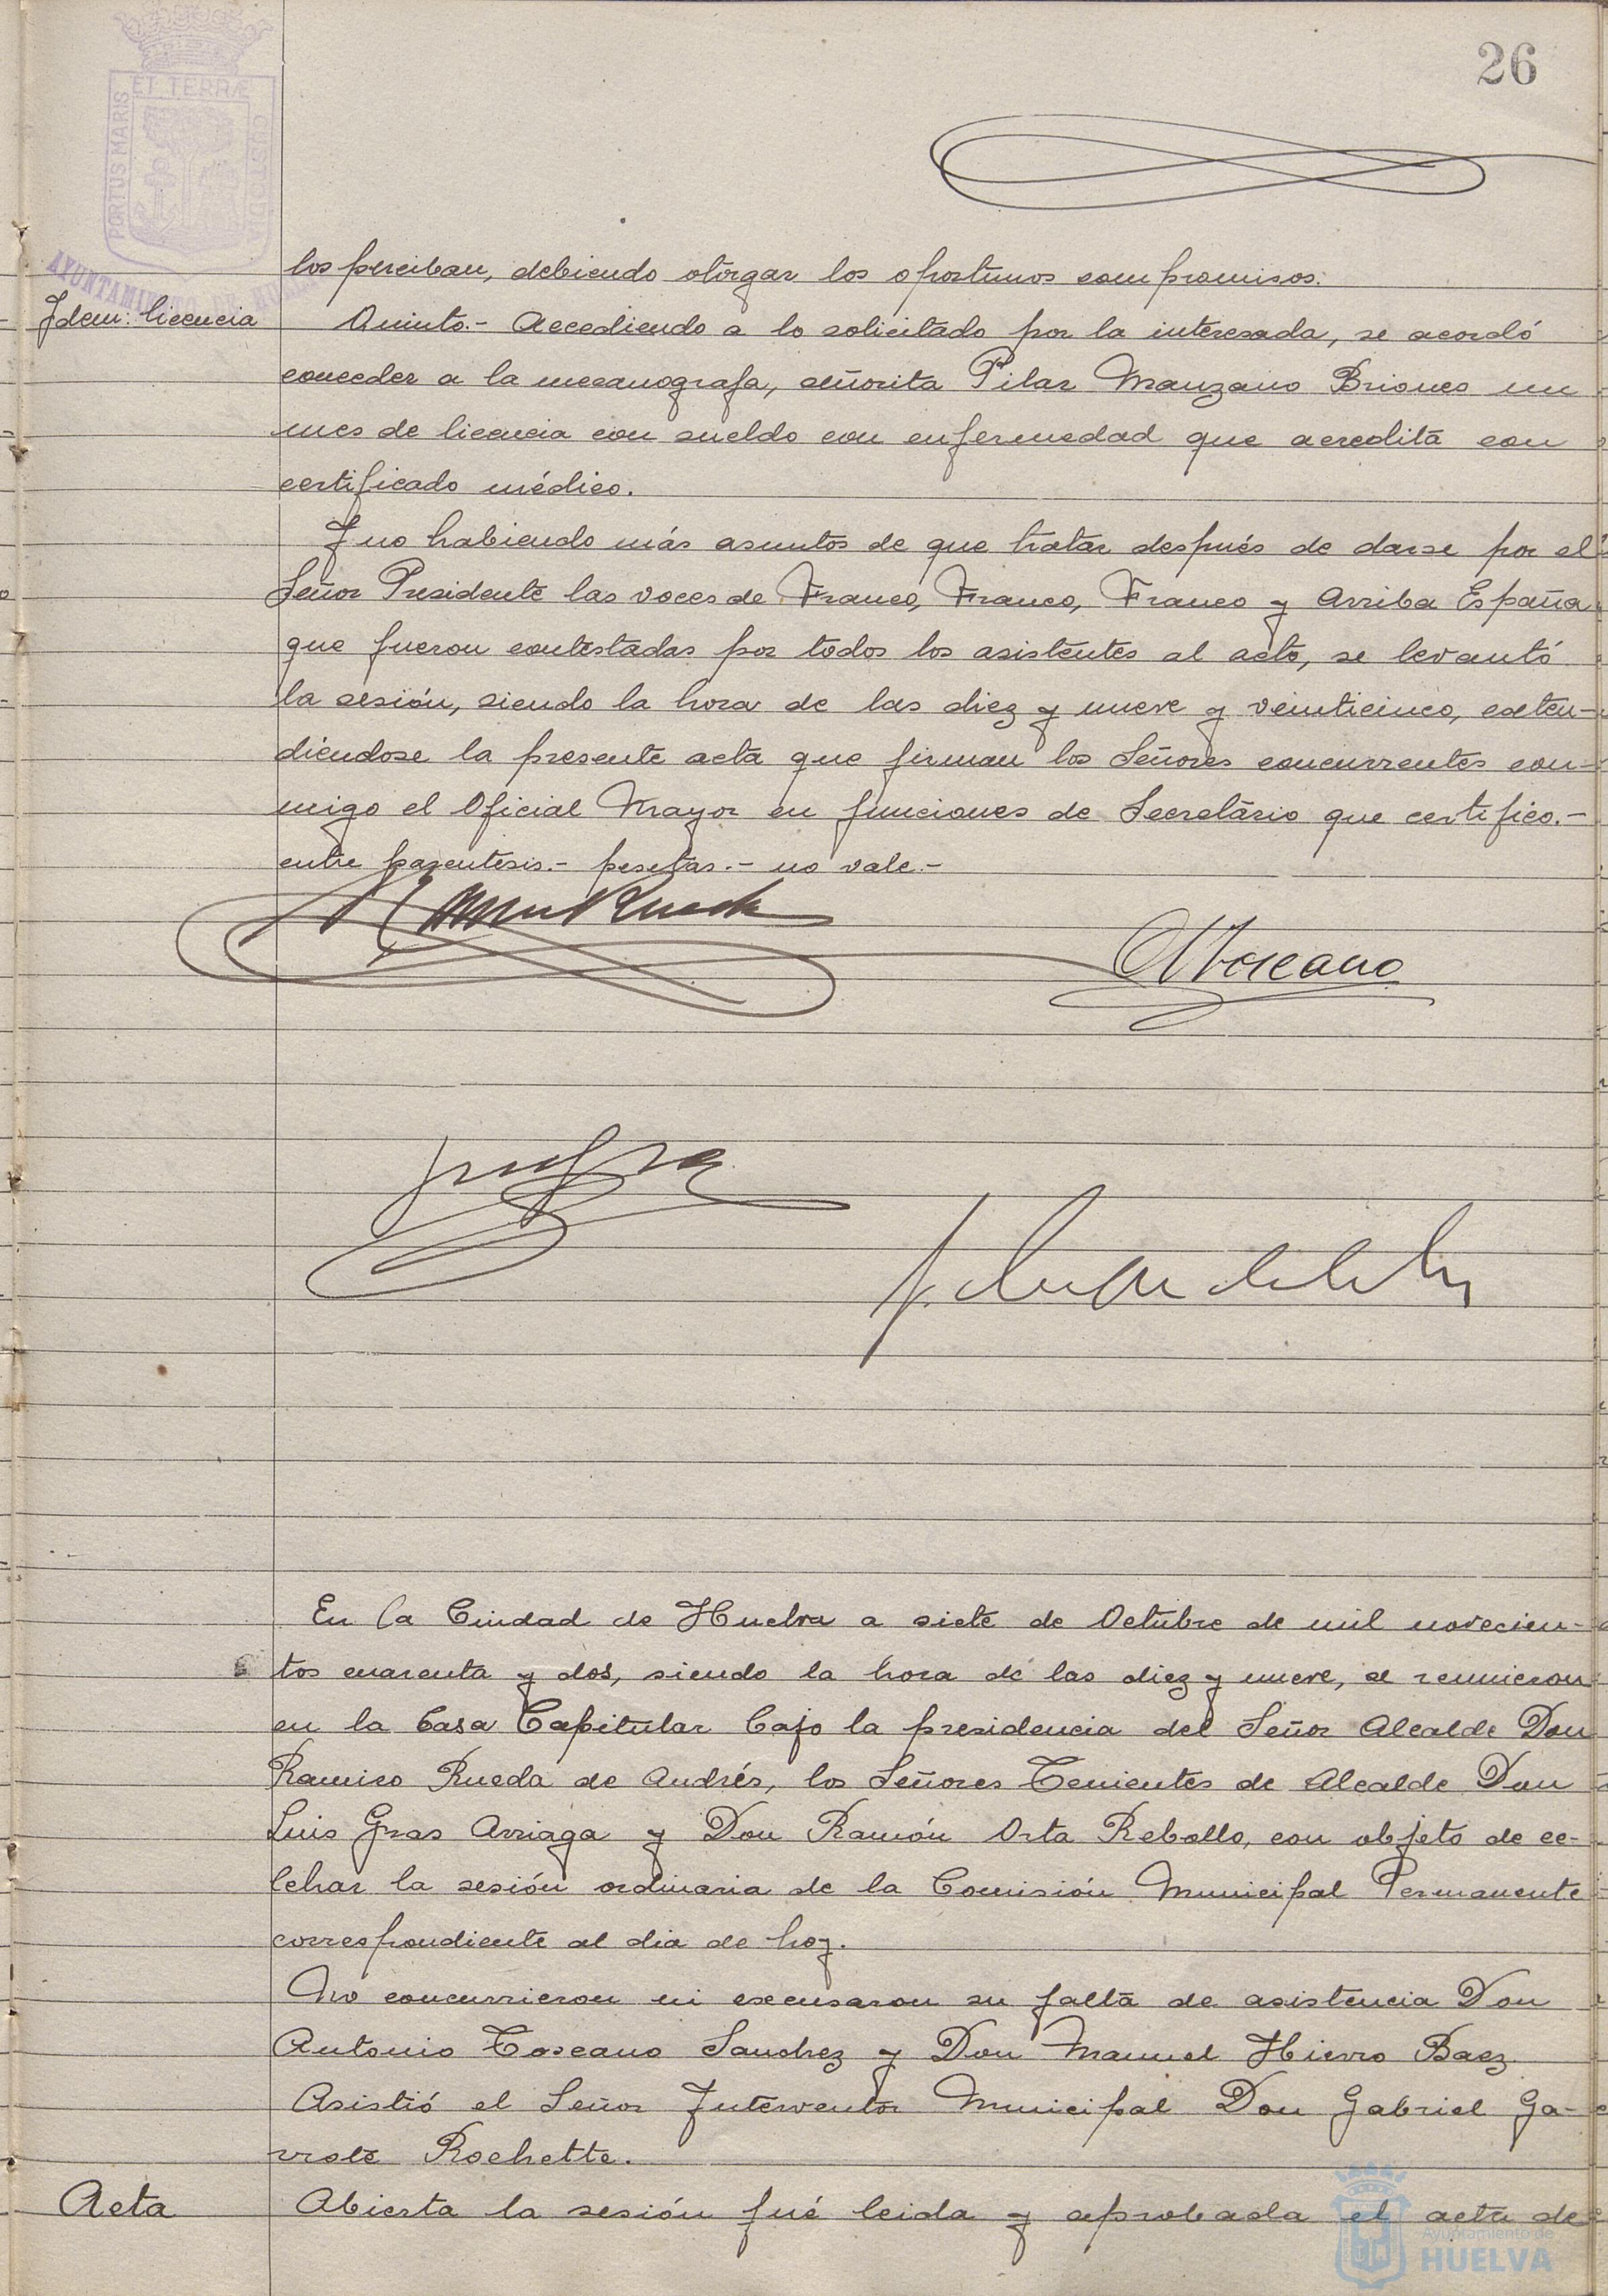 26
PORTUS MARIS ET TERRÆ CUSTODIA
AYUNTAMIENTO DE HUELVA
los perciban, debiendo otorgar los oportunos compromisos.
Idem: licencia
Quinto.- Accediendo a lo solicitado por la interesada, se acordó
conceder a la mecanografa, señorita Pilar Manzano Briones un
mes de licencia con sueldo con enfermedad que acredita con
certificado médico.
Y no habiendo más asuntos de que tratar después de darse por el
Señor Presidente las voces de Franco, Franco, Franco y Arriba España
que fueron contestadas por todos los asistentes al acto, se levantó
la sesión, siendo la hora de las diez y nueve y veinticinco, exten-
diendose la presente acta que firman los Señores concurrentes con-
migo el Oficial Mayor en funciones de Secretario que certifico.-
entre parentesis.- pesetas.- no vale.-
Toscano
En la Ciudad de Huelva a siete de Octubre de mil novecien-
tos cuarenta y dos, siendo la hora de las diez y nueve, se reunieron
en la Casa Capitular bajo la presidencia del Señor Alcalde Don
Ramiro Rueda de Andrés, los Señores Tenientes de Alcalde Don
Luis Gras Arriaga y Don Ramón Orta Rebollo, con objeto de ce-
lebrar la sesión ordinaria de la Comisión Municipal Permanente
correspondiente al dia de hoy.
No concurrieron ni excusaron su falta de asistencia Don
Antonio Toscano Sanchez y Don Manuel Hierro Baez.
Asistió el Señor Interventor Municipal Don Gabriel Ga-
vrote Rochette.
Acta
Abierta la sesión fué leida y aprobada el acta de
Ayuntamiento de
HUELVA